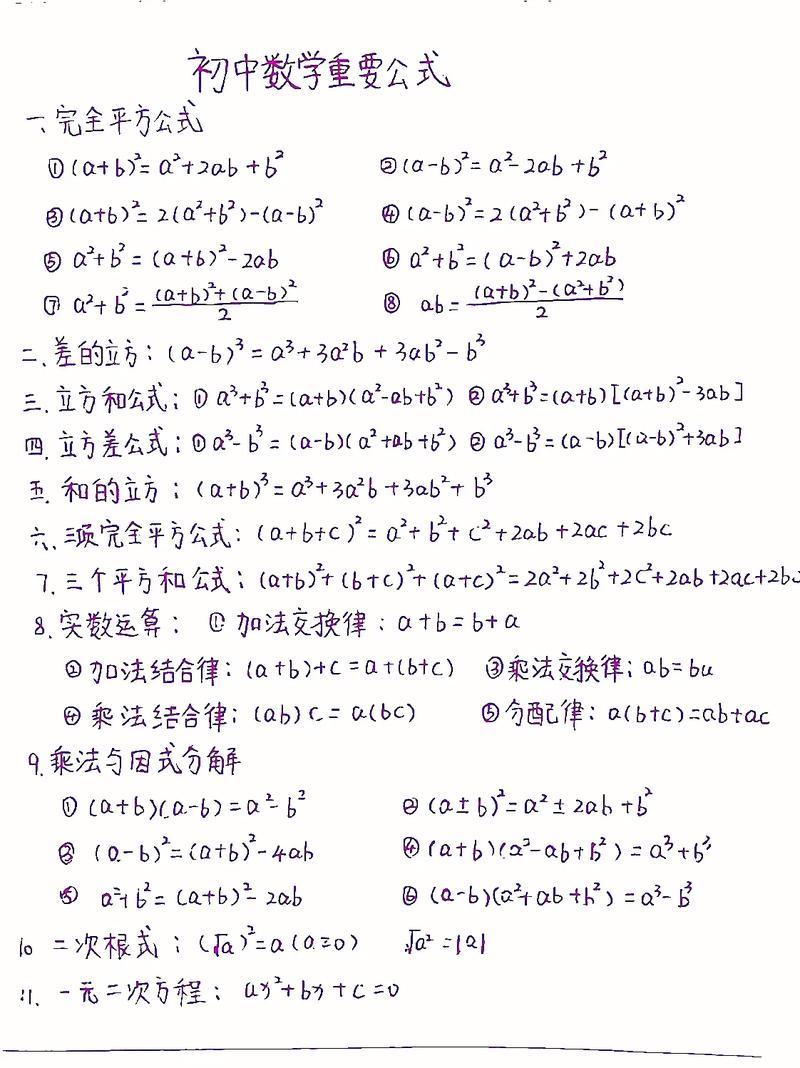 初中数学重要公式
一、完全平方公式
①(a+b)²=a²+2ab+b² ②(a-b)²=a²-2ab+b²
③(a+b)²=2(a²+b²)-(a-b)² ④(a-b)²=2(a²+b²)-(a+b)²
⑤a²+b²=(a+b)²-2ab ⑥a²+b²=(a-b)²+2ab
⑦a²+b²=\frac{(a+b)²+(a-b)²}{2} ⑧ab=\frac{(a+b)²-(a²+b²)}{2}
二、差的立方：(a-b)³=a³+3a²b+3ab²-b³
三、立方和公式：①a³+b³=(a+b)(a²-ab+b²) ②a³+b³=(a+b)[(a+b)²-3ab]
四、立方差公式：①a³-b³=(a-b)(a²+ab+b²) ②a³-b³=(a-b)[(a-b)²+3ab]
五、和的立方：(a+b)³=a³+3a²b+3ab²+b³
六、三项完全平方公式：(a+b+c)²=a²+b²+c²+2ab+2ac+2bc
7、三个平方和公式：(a+b)²+(b+c)²+(a+c)²=2a²+2b²+2c²+2ab+2ac+2bc
8、实数运算：①加法交换律：a+b=b+a
②加法结合律：(a+b)+c=a+(b+c) ③乘法交换律：ab=ba
④乘法结合律：(ab)c=a(bc) ⑤分配律：a(b+c)=ab+ac
9、乘法与因式分解
①(a+b)(a-b)=a²-b² ②(a±b)²=a²±2ab+b²
③(a-b)²=(a+b)²-4ab ④(a+b)(a²-ab+b²)=a³+b³
⑤a²+b²=(a+b)²-2ab ⑥(a-b)(a²+ab+b²)=a³-b³
10 二次根式：(√a)²=a(a≥0) √a²=|a|
11、一元二次方程：ax²+bx+c=0